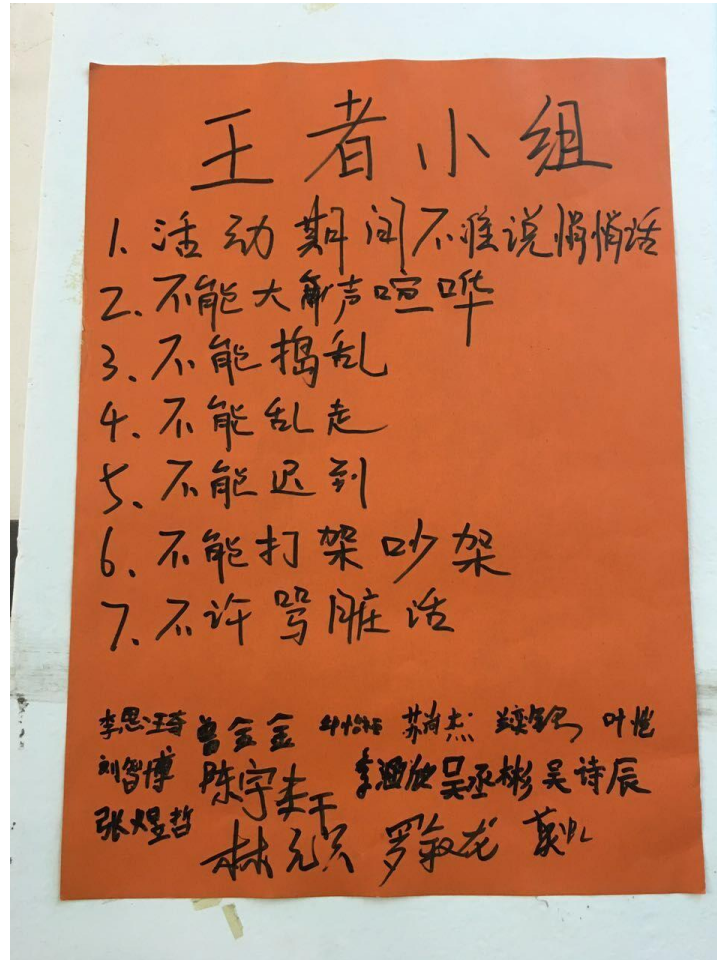 王者小组
1. 活动期间不准说悄悄话
2、不能大声喧哗
3、不能捣乱
4、不能乱走
5、不能迟到
6、不能打架吵架
7、不许骂脏话
李思琦 曾金金 苏尚杰 叶恺
刘智博 陈宇 吴丞彬 吴诗辰
张煜哲
林元 罗叙龙